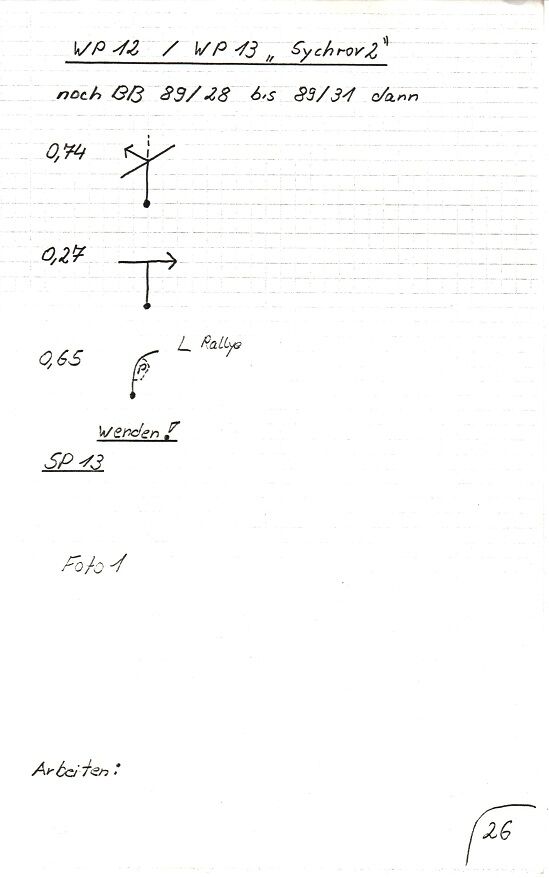 WP 12 / WP 13 „Sychrov 2"
noch BB 89/28 bis 89/31 dann
0,74
0,27
0,65 L Rallye
P
Wenden!
SP 13
Foto 1
Arbeiten:
26